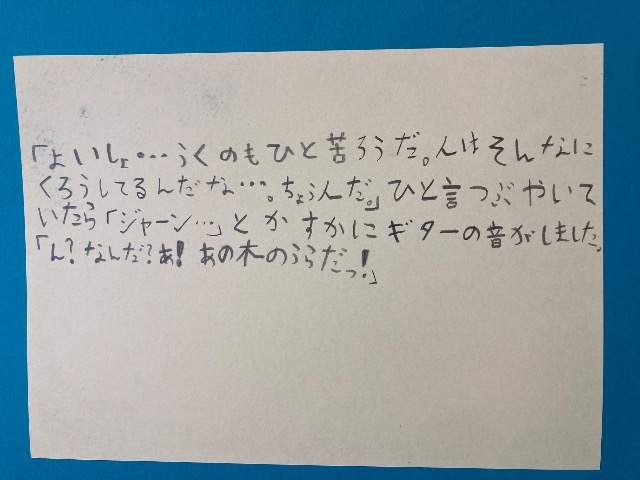 「よいしょ…うくのもひと苦ろうだ。人はそんなに
くろうしてるんだな…。ちょう人だ。」ひと言つぶやいて
いたら「ジャーン…」とかすかにギターの音がしました。
「ん？なんだ？あ！あの木のうらだっ！」